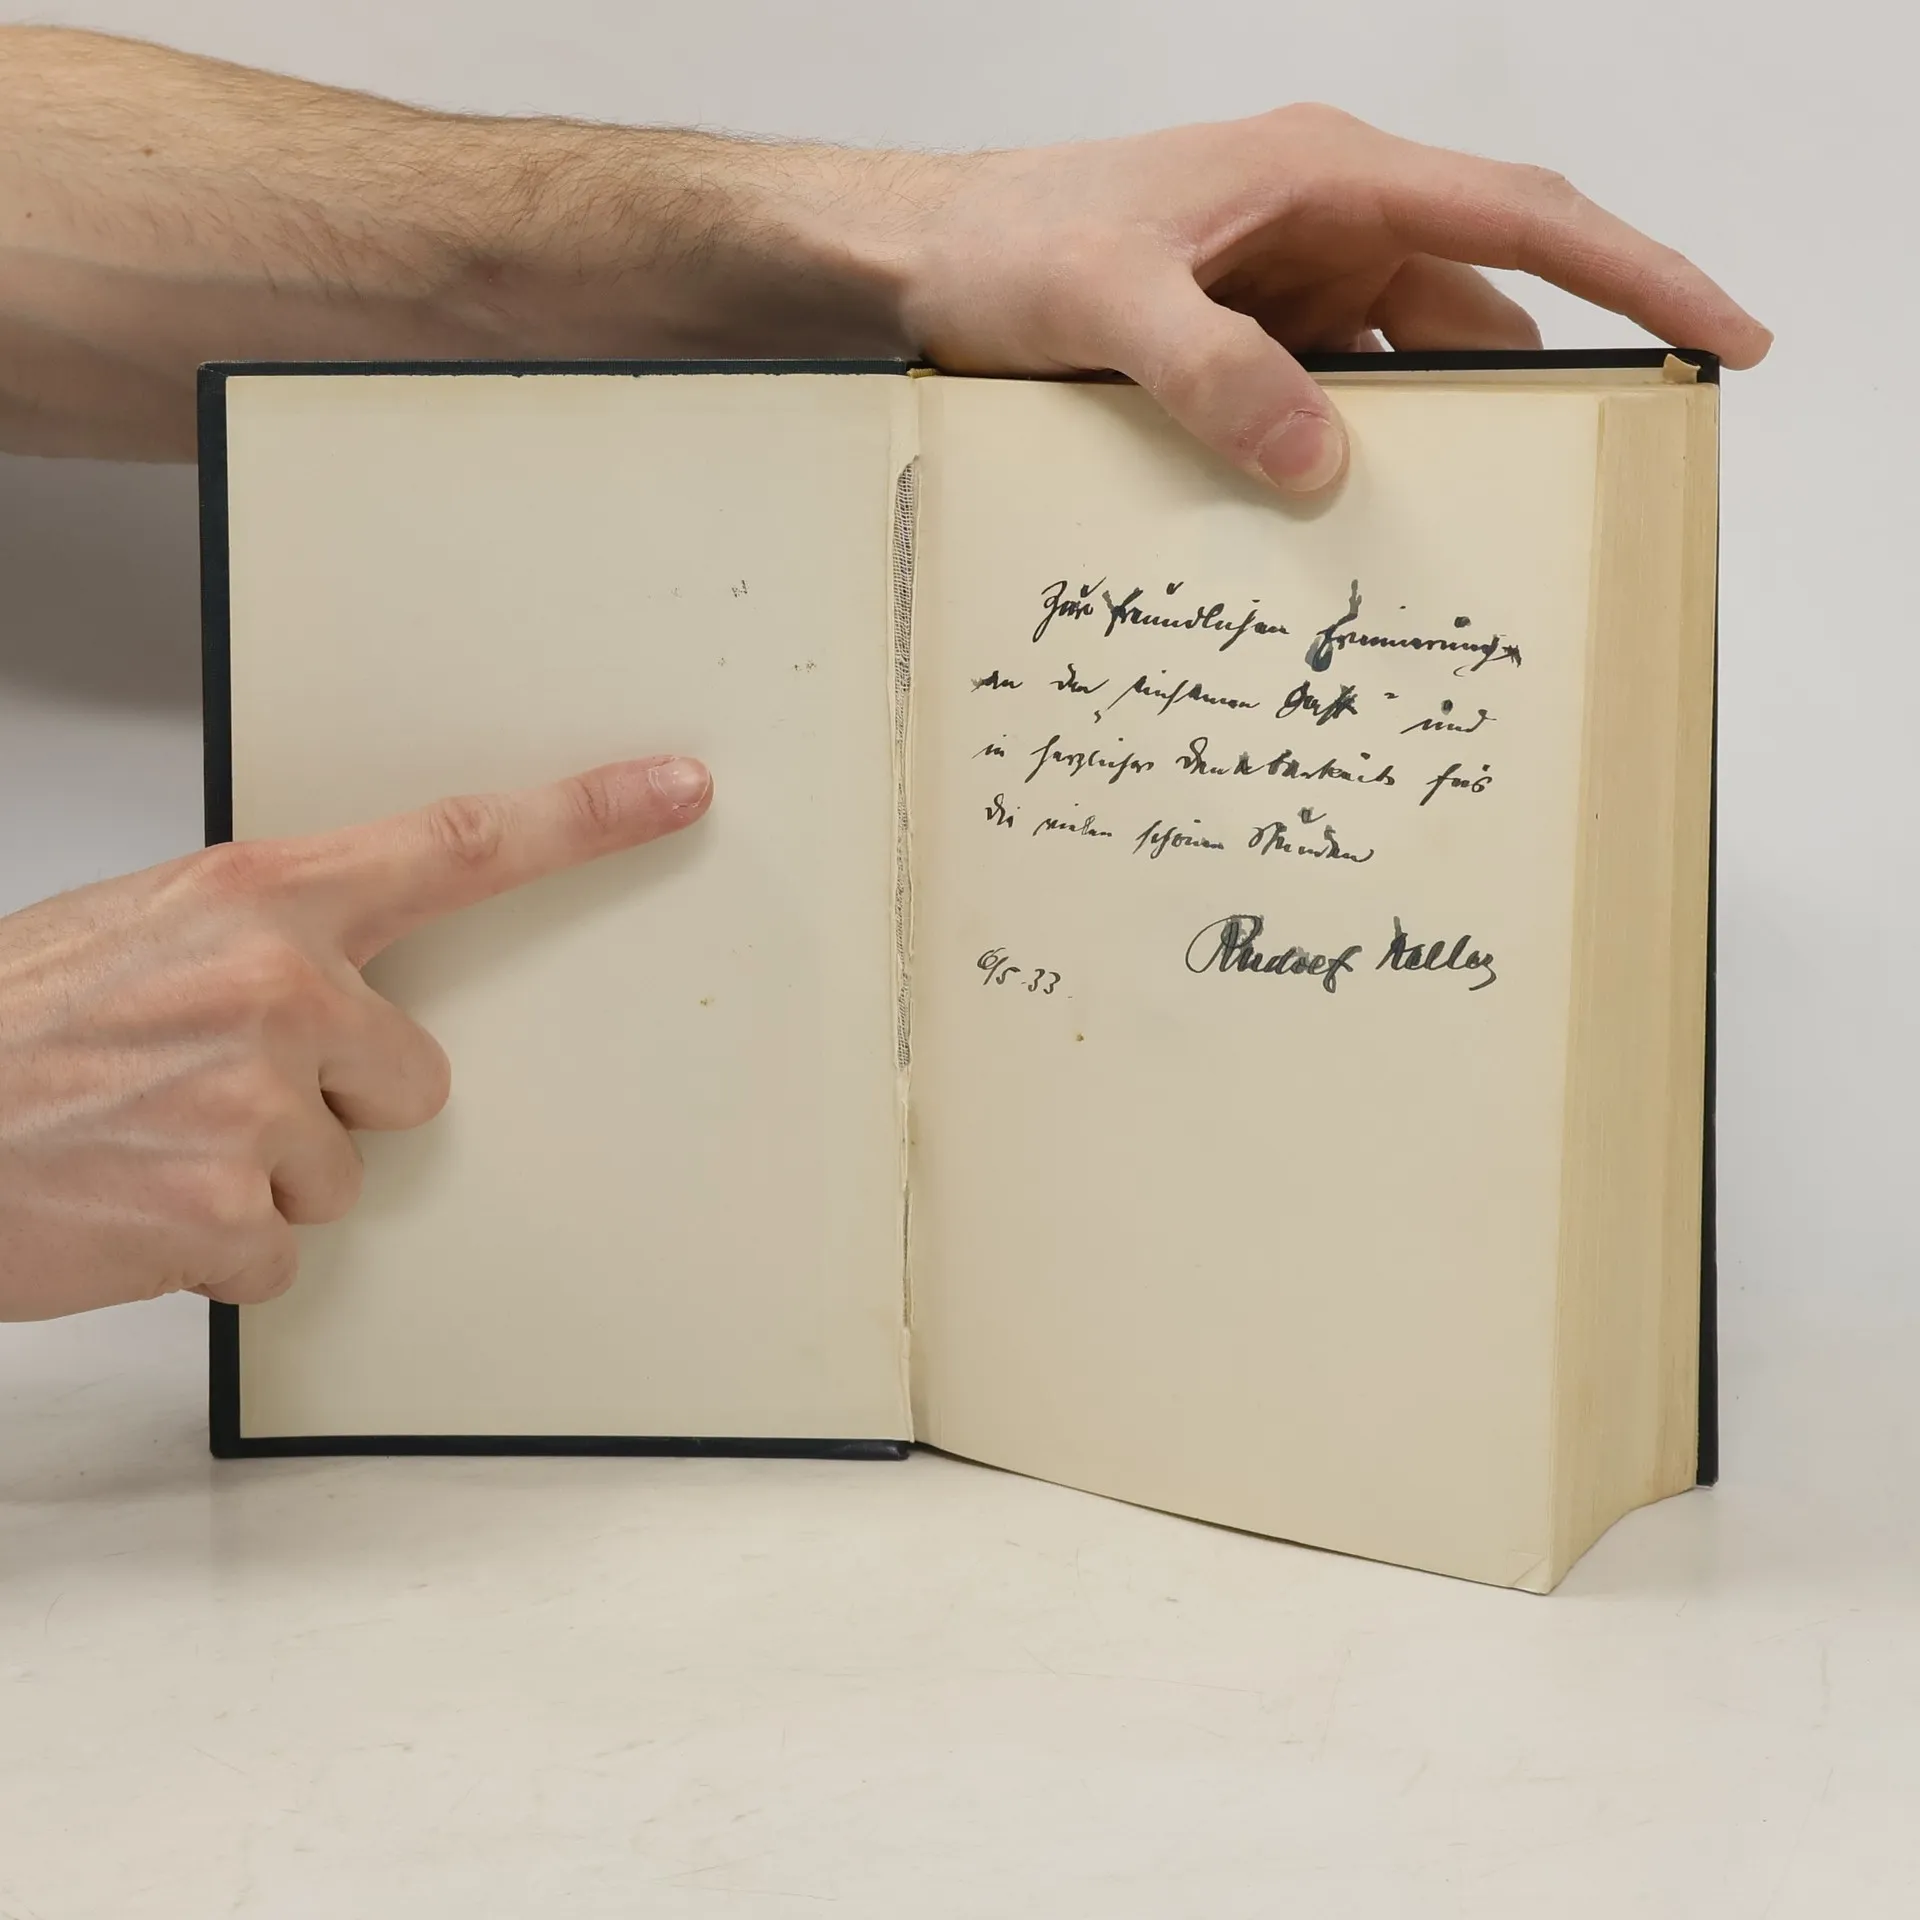 Zur freundlichen Erinnerung
an den „einsamen Gast" und
in herzlicher Dankbarkeit für
die vielen schönen Stunden
Rudolf Keller
6/5.33.